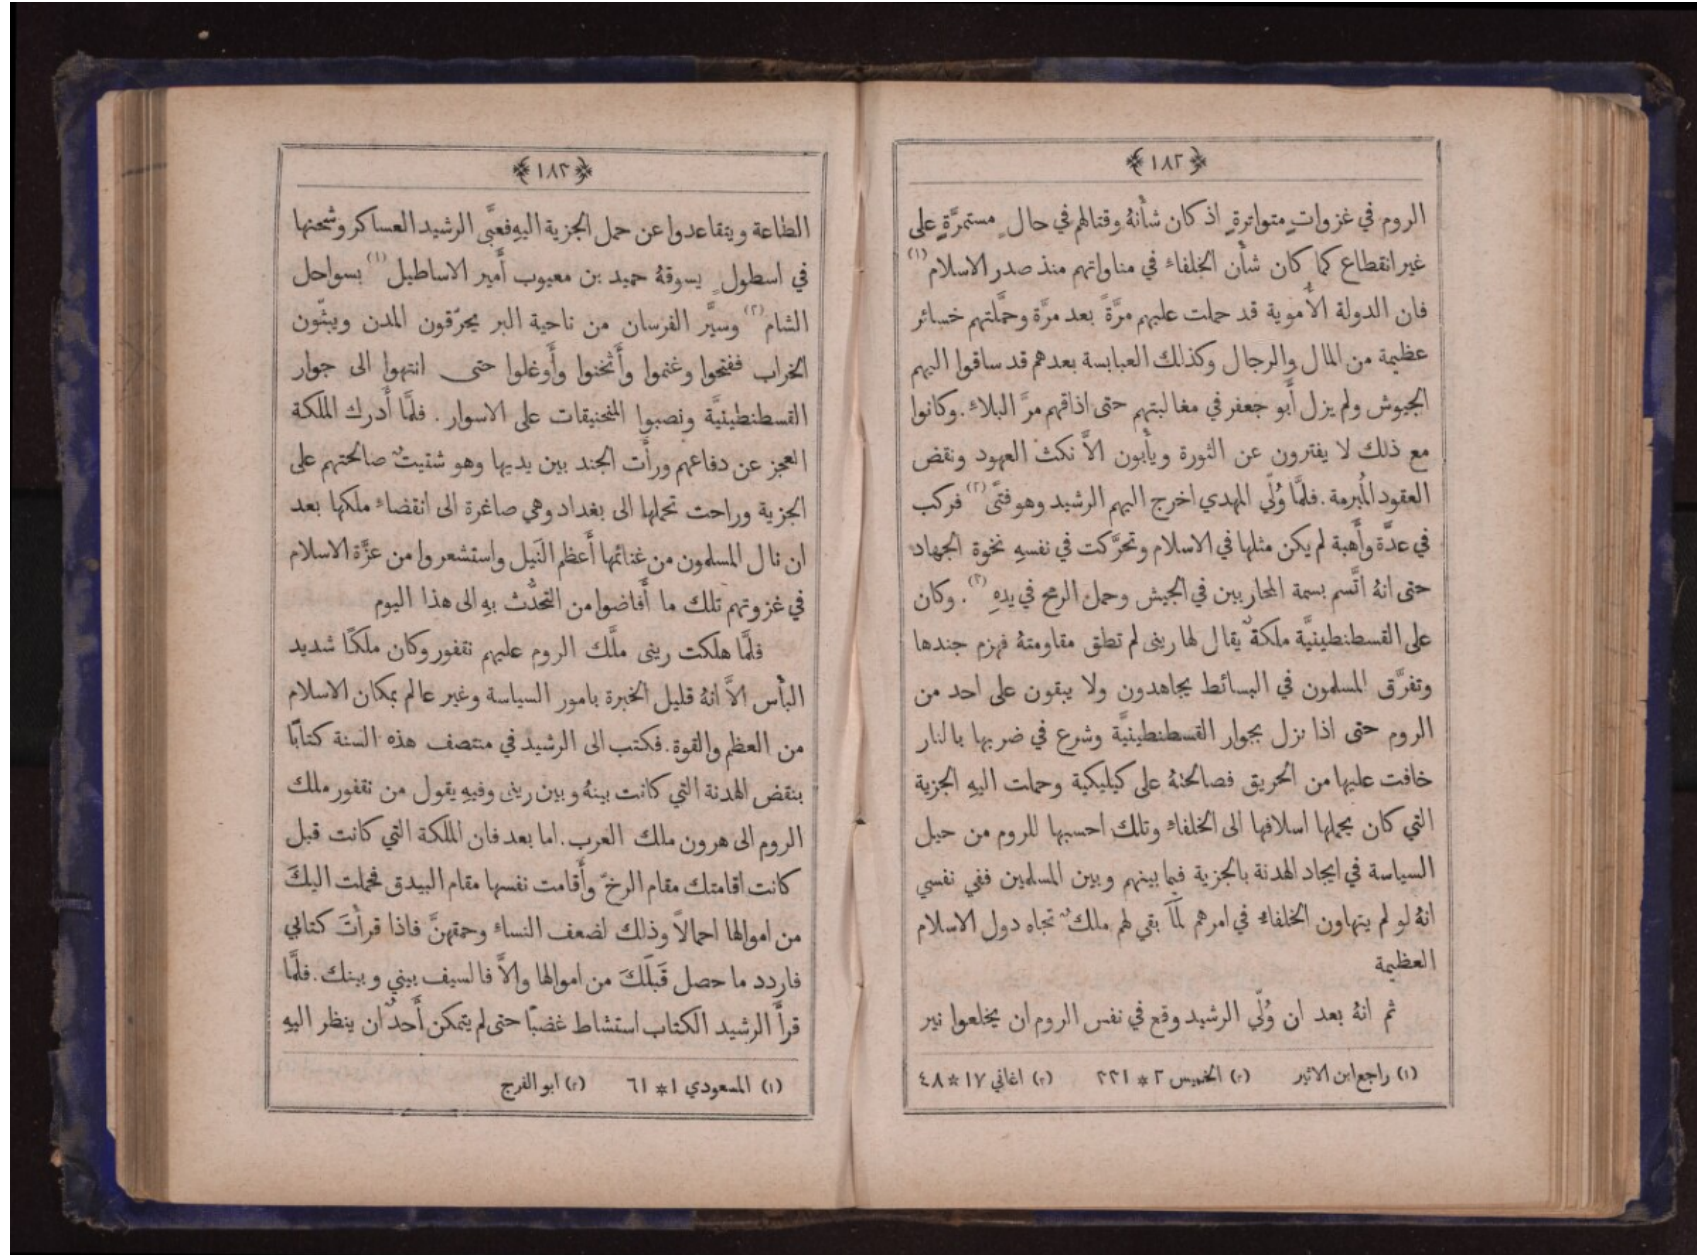 ﴿١٨٢﴾
الروم في غزواتٍ متواترةٍ اذ كان شأنهُ وقتالهم في حالٍ مستمرَّةٍ على
غير انقطاع كما كان شأن الخلفاء في مناواتهم منذ صدر الاسلام (١)
فان الدولة الأموية قد حملت عليهم مرَّةً بعد مرَّة وحمَّلتهم خسائر
عظيمة من المال والرجال وكذلك العبابسة بعدهم قد ساقوا اليهم
الجيوش ولم يزل أبو جعفر في مغالبتهم حتى اذاقهم مرَّ البلاء. وكانوا
مع ذلك لا يفترون عن الثورة ويأبون الاَّ نكث العهود ونقض
العقود المُبرمة. فلمَّا وُلّي المهدي اخرج اليهم الرشيد وهو فتىً (٢) فركب
في عدَّة وأُهبة لم يكن مثلها في الاسلام وتحرَّكت في نفسهِ نخوة الجهاد
حتى انهُ اتَّسم بسمة المحاربين في الجيش وحمل الرمح في يدهِ (٣). وكان
على القسطنطينيَّة ملكةٌ يقال لها ريني لم تطق مقاومتهُ فهزم جندها
وتفرَّق المسلمون في البسائط يجاهدون ولا يبقون على احد من
الروم حتى اذا نزل بجوار القسطنطينيَّة وشرع في ضربها بالنار
خافت عليها من الحريق فصالحتهُ على كيليكية وحملت اليهِ الجزية
التي كان يحملها اسلافها الى الخلفاء وتلك احسبها للروم من حيل
السياسة في ايجاد الهدنة بالجزية فيما بينهم وبين المسلمين ففي نفسي
انهُ لو لم يتهاون الخلفاء في امرهم لمَا بقي لهم ملكٌ تجاه دول الاسلام
العظيمة
ثم انهُ بعد ان وُلّي الرشيد وقع في نفس الروم ان يخلعوا نير
(١) راجع ابن الاثير (٢) الخميس ٢ * ٣٣١ (٣) اغاني ١٧ * ٤٨
﴿١٨٣﴾
الطاعة ويتقاعدوا عن حمل الجزية اليهِ فعبَّى الرشيد العساكر وشحنها
في اسطولٍ يسوقهُ حميد بن معيوب أمير الاساطيل (١) بسواحل
الشام (٢) وسيَّر الفرسان من ناحية البر يحرّقون المدن ويبثّون
الخراب ففتحوا وغنموا وأثخنوا وأوغلوا حتى انتهوا الى جوار
القسطنطينيَّة ونصبوا المنجنيقات على الاسوار. فلمَّا أدرك الملكة
العجز عن دفاعهم ورأت الجند بين يديها وهو شتيتٌ صالحتهم على
الجزية وراحت تحملها الى بغداد وهي صاغرة الى انقضاء ملكها بعد
ان نال المسلمون من غنائمها أعظم النَيل واستشعروا من عزَّة الاسلام
في غزوتهم تلك ما أفاضوا من التحدُّث بهِ الى هذا اليوم
فلمَّا هلكت ريني ملَّك الروم عليهم نقفور وكان ملكًا شديد
البأس الاَّ انهُ قليل الخبرة بامور السياسة وغير عالم بمكان الاسلام
من العظم والقوة. فكتب الى الرشيد في منتصف هذه السنة كتابًا
بنقض الهدنة التي كانت بينهُ وبين ريني وفيهِ يقول من نقفور ملك
الروم الى هرون ملك العرب. اما بعد فان الملكة التي كانت قبل
كانت اقامتك مقام الرخّ وأقامت نفسها مقام البيدق فحملت اليكَ
من اموالها احمالاً وذلك لضعف النساء وحمقهنَّ فاذا قرأتَ كتابي
فاردد ما حصل قَبلَكَ من اموالها والاَّ فالسيف بيني وبينك. فلمَّا
قرأ الرشيد الكتاب استشاط غضبًا حتى لم يتمكن أحدٌ ان ينظر اليهِ
(١) المسعودي ١ * ٦١ (٢) ابو الفرج